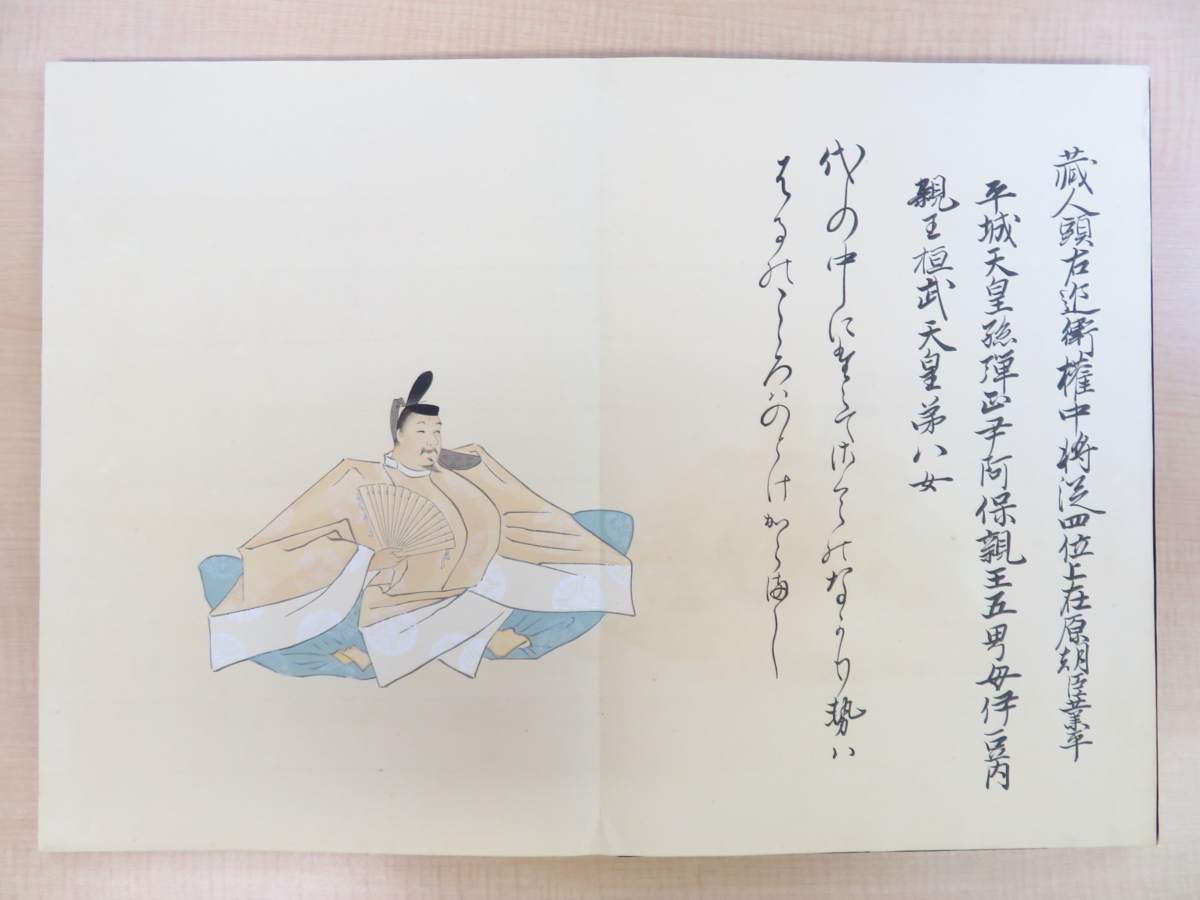 蔵人頭右近衛権中将従四位上在原朝臣業平
平城天皇孫弾正尹阿保親王五男母伊豆内
親王桓武天皇第八女
代の中にたえてさくらのなかり勢ハ
はるのこゝろハのとけからまし